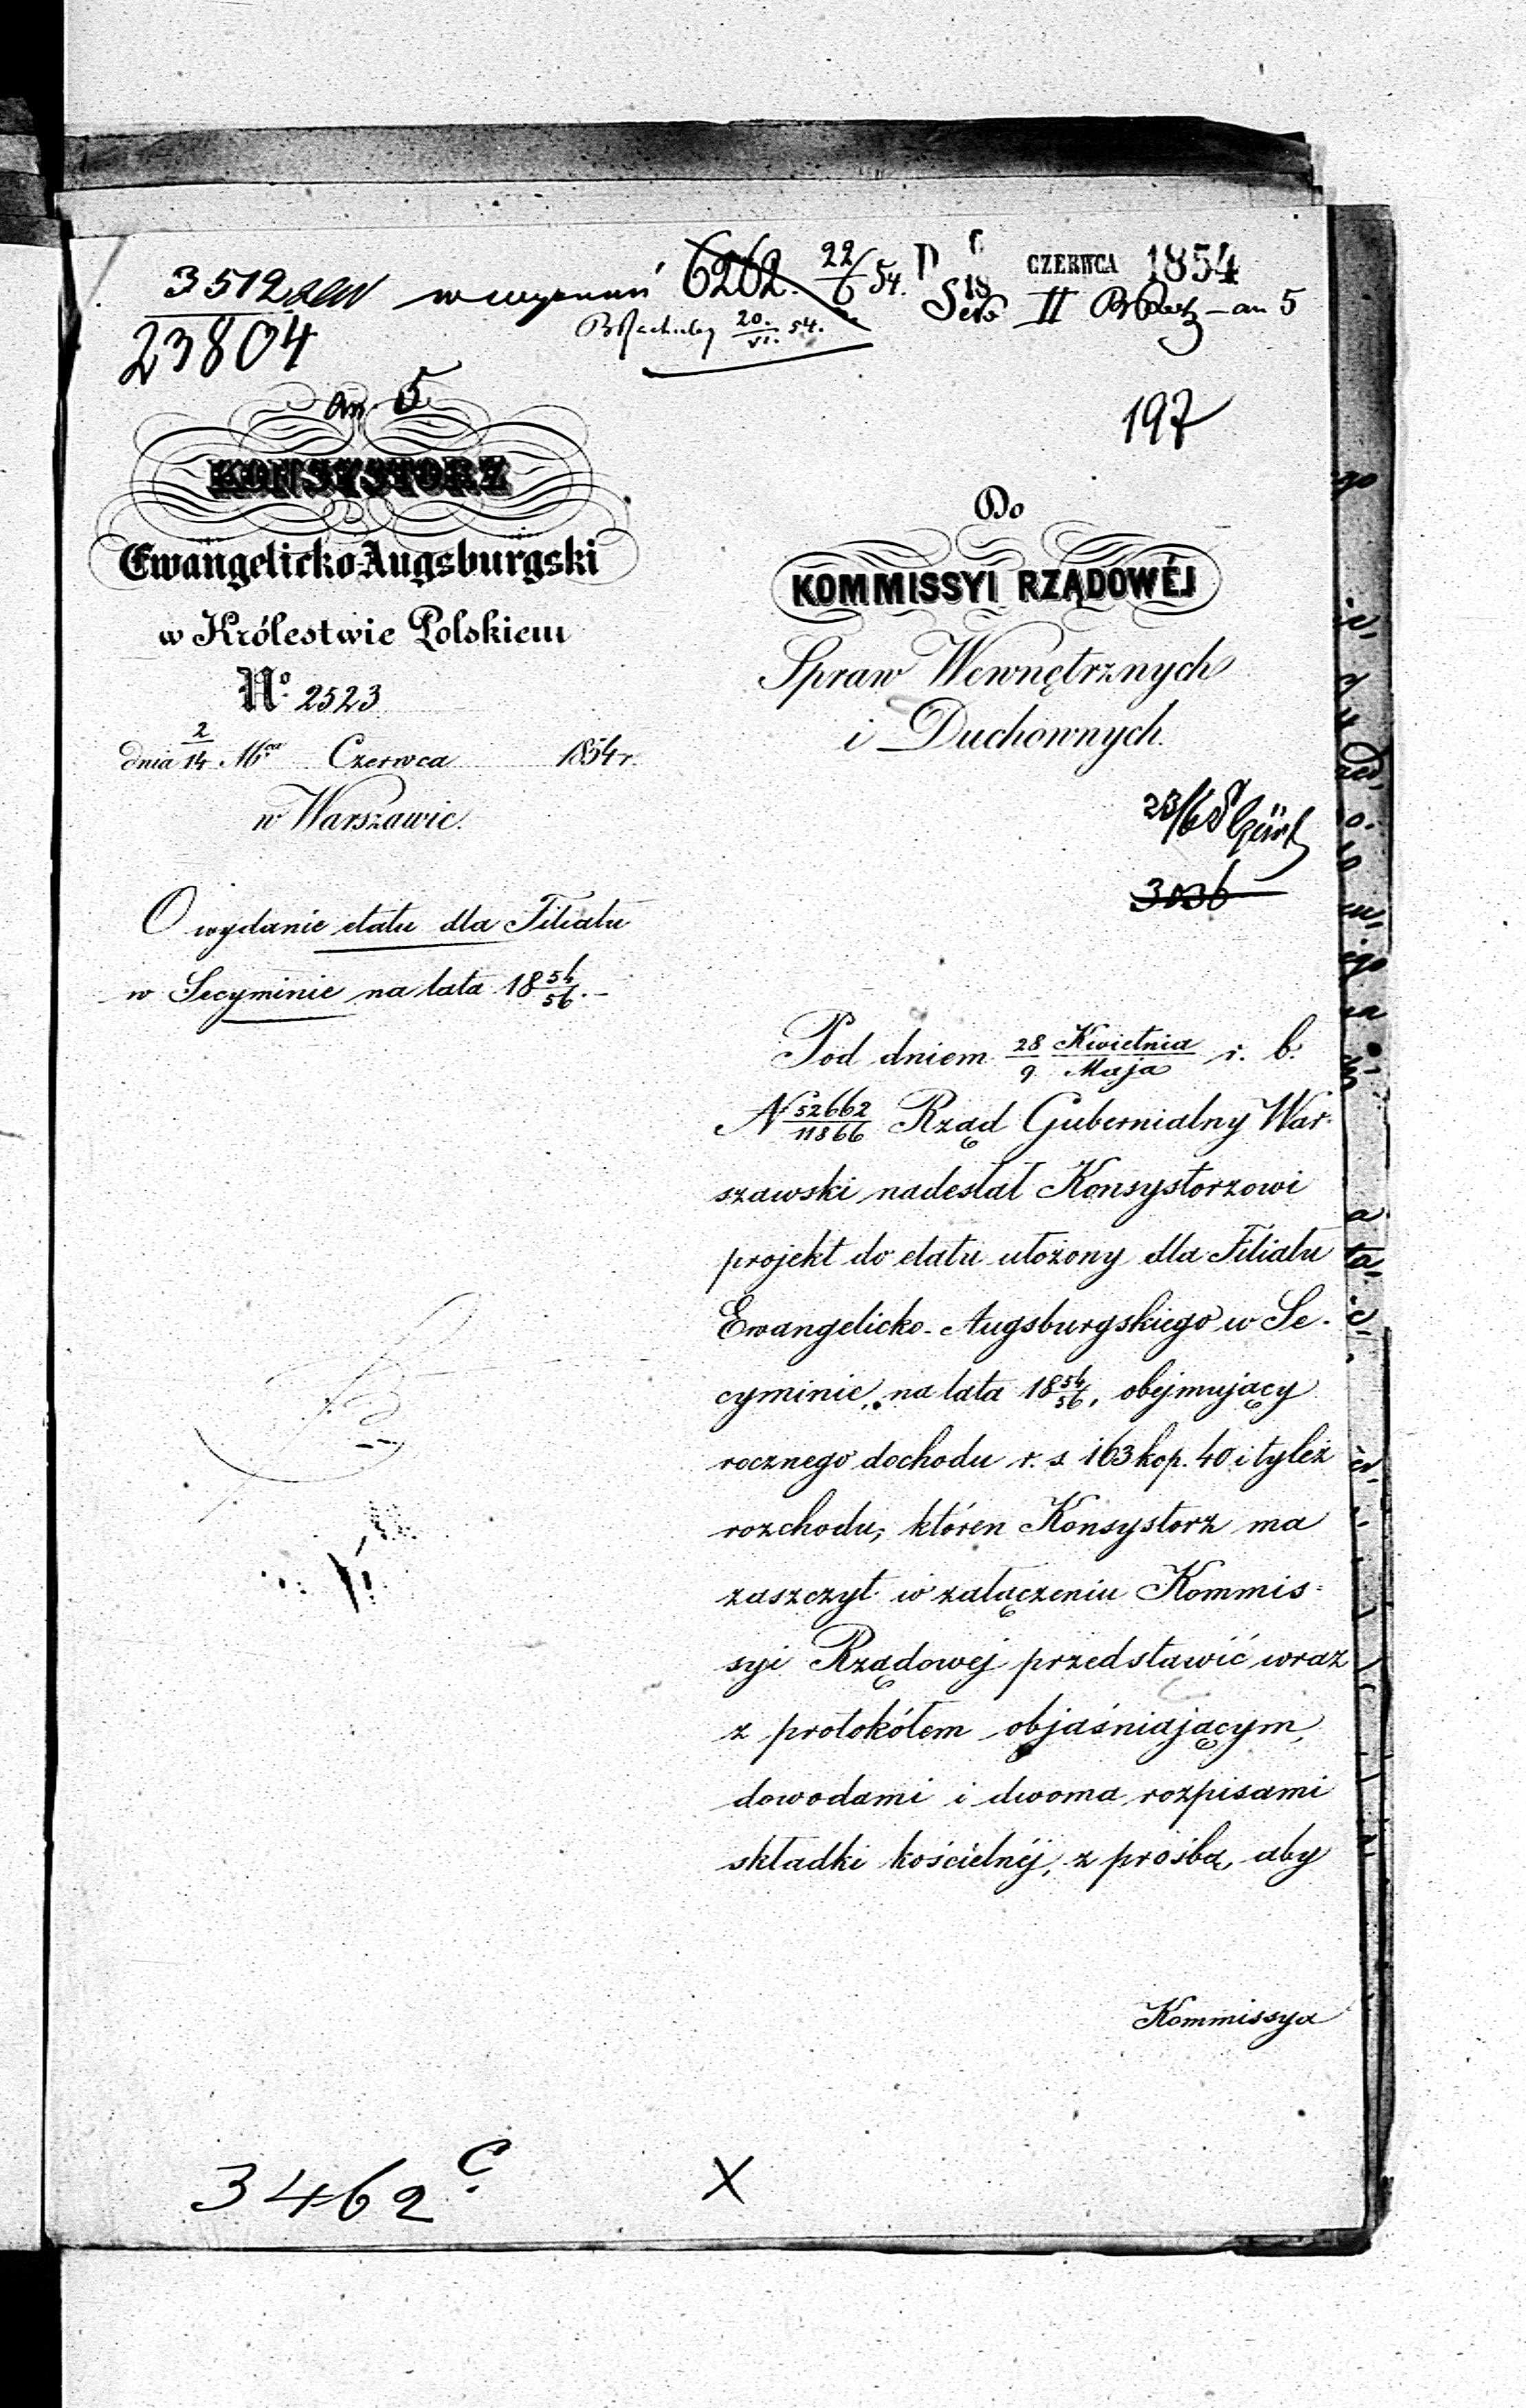 3512
23804
6262. 22/6 54.
20/VI. 54.
18 CZERWCA 1854
II an 5
an 5
197
KONSYSTORZ
Ewangelicko-Augsburgski
w Królestwie Polskiem
No. 2523
dnia 2/14 Mca Czerwca 1854 r.
w Warszawie.
O wydanie etatu dla Filiału
w Secyminie na lata 18 54/56.
Do
KOMMISSYI RZĄDOWÉJ
Spraw Wewnętrznych
i Duchownych.
23/6
3036
Pod dniem 28 Kwietnia/9 Maja r. b.
N 52662/11866 Rząd Gubernialny War-
szawski nadesłał Konsystorzowi
projekt do etatu ułożony dla Filiału
Ewangelicko-Augsburgskiego w Se-
cyminie, na lata 18 54/56, obejmujący
rocznego dochodu r. s. 163 kop. 40 i tyleż
rozchodu, któren Konsystorz ma
zaszczyt w załączeniu Kommis-
syi Rządowej przedstawić wraz
z protokółem objaśniającym,
dowodami i dwoma rozpisami
składki kościelnéj, z prośbą, aby
Kommissya
3462 C.
X